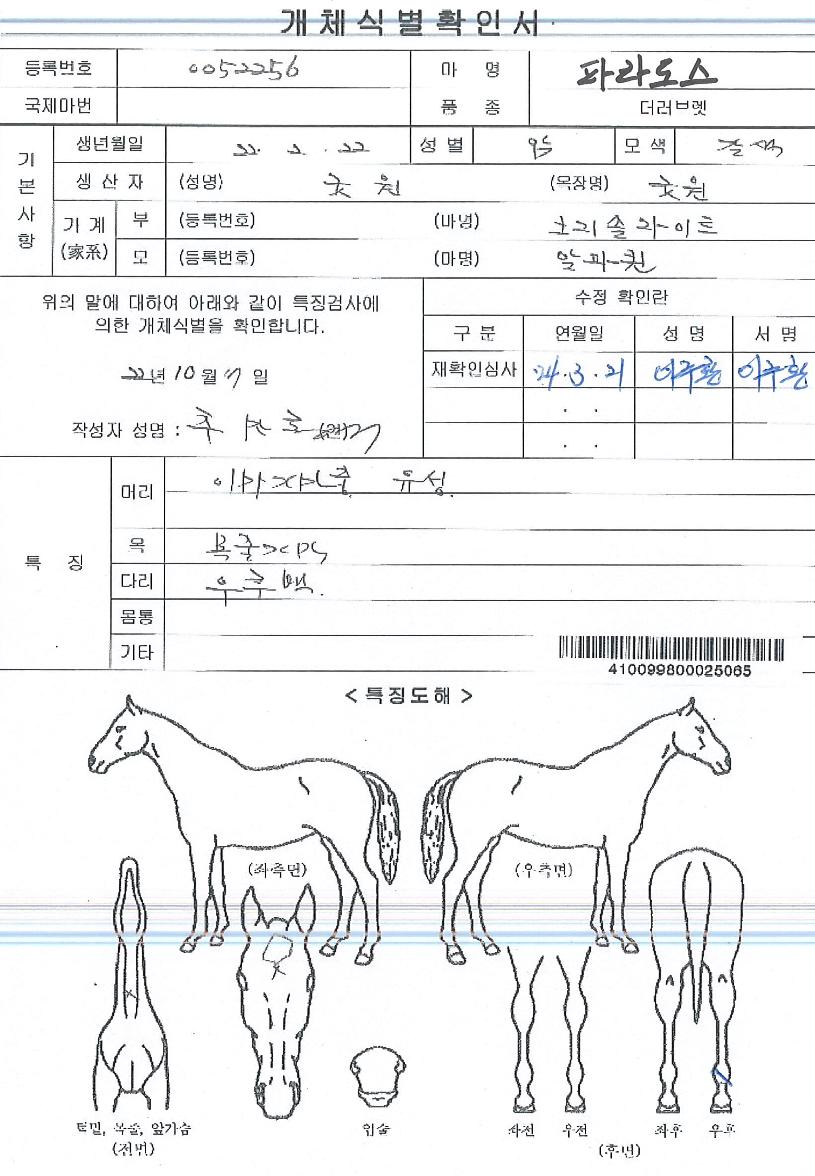 개체식별확인서
등록번호 0052256 마명 파라도스
국제마번 품종 더러브렛
기본사항
생년월일 22. 2. 22 성별 암 모색 갈색
생산자 (성명) (목장명)
기계(家系) 부 (등록번호) (마명) 브리솔라이트
모 (등록번호) (마명) 알파퀸
위의 말에 대하여 아래와 같이 특징검사에
의한 개체식별을 확인합니다.
22년 10월 일
작성자 성명 :
수정 확인란
구분 연월일 성명 서명
재확인심사 24. 3. 21 이주환 이주환
. .
. .
특징
머리 유성
목
다리 우후백
몸통
기타
410099800025065
<특징도해>
(좌측면) (우측면)
턱밑, 목줄, 앞가슴
(전면)
입술
좌전 우전 좌후 우후
(후면)